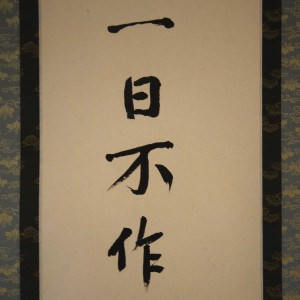 一日不作